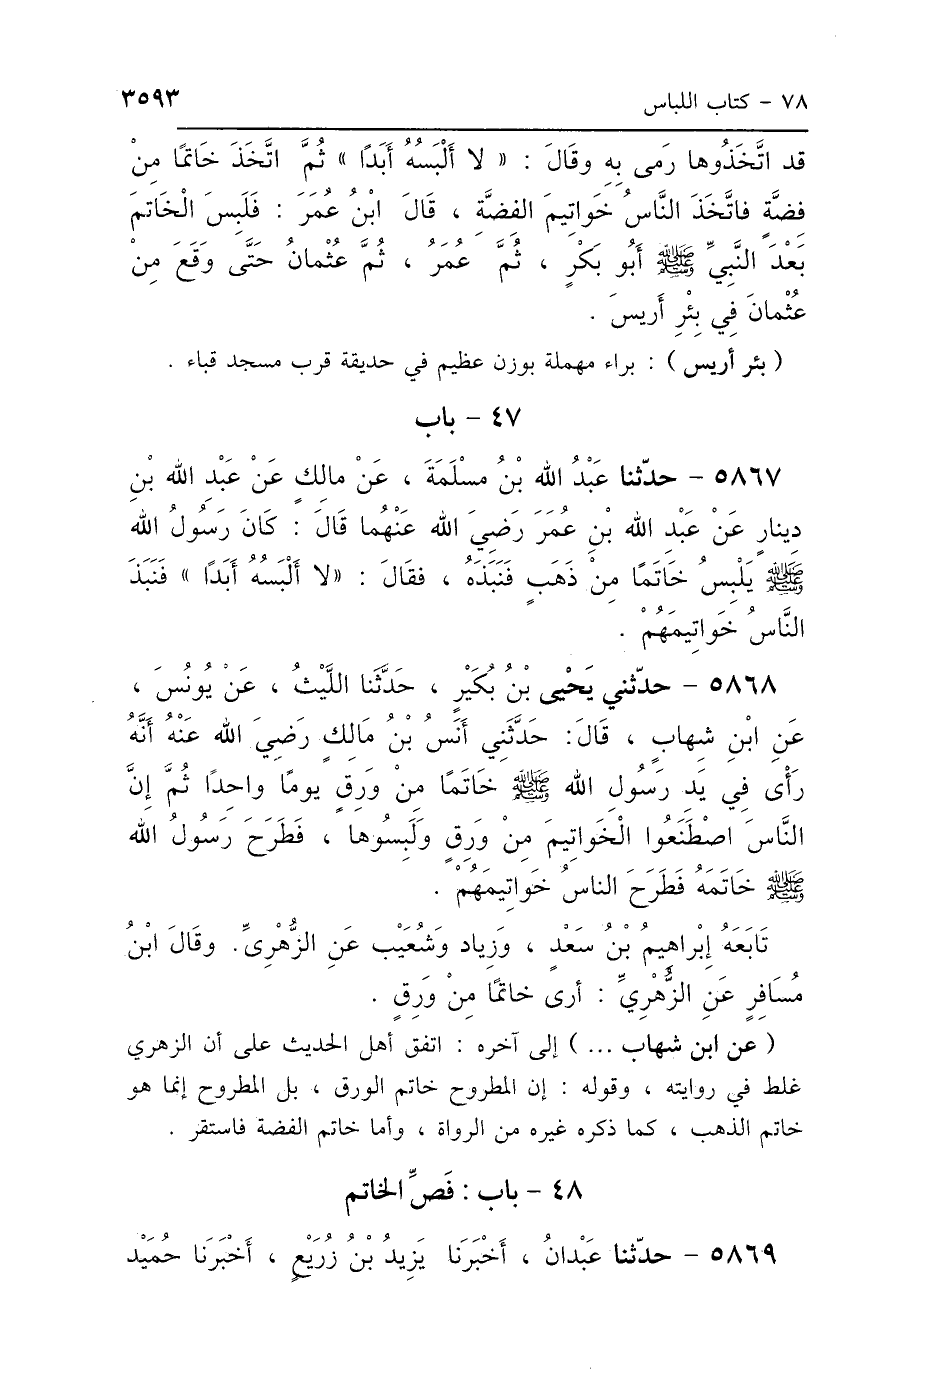 ٧٨ - كتاب اللباس ٣٥٩٣
قد اتَّخَذُوها رَمى بِهِ وقَالَ : « لا أَلْبَسُهُ أَبَدًا » ثُمَّ اتَّخَذَ خَاتمًا مِنْ
فِضَّةٍ فاتَّخَذَ النَّاسُ خَواتِيمَ الفِضَّةِ ، قَالَ ابْنُ عُمَرَ : فَلَبِسَ الْخَاتمَ
بَعْدَ النَّبِيِّ ﷺ أَبُو بَكْرٍ ، ثُمَّ عُمَرُ ، ثُمَّ عثْمانُ حَتَّى وَقَعَ مِنْ
عثْمانَ فِي بِئْرِ أَرِيسَ .
( بئر أريس ) : براء مهملة بوزن عظيم في حديقة قرب مسجد قباء .
٤٧ - باب
٥٨٦٧ - حدّثنا عَبْدُ الله بْنُ مسْلَمَةَ ، عَنْ مالكٍ عَنْ عَبْدِ الله بْنِ
دينارٍ عَنْ عَبْدِ الله بْنِ عُمَرَ رَضِيَ الله عَنْهُما قَالَ : كَانَ رَسُولُ الله
ﷺ يَلْبِسُ خَاتَمًا مِنْ ذَهَبٍ فَنَبَذَهُ ، فقَالَ : «لا أَلْبَسُهُ أَبَدًا » فَنَبَذَ
النَّاسُ خَواتِيمَهُمْ .
٥٨٦٨ - حدّثني يَحْيى بْنُ بُكَيْرٍ ، حَدَّثَنا اللَّيْثُ ، عَنْ يُونُسَ ،
عَنِ ابْنِ شهابٍ ، قَالَ: حَدَّثَنِي أَنَسُ بْنُ مَالِكٍ رَضِيَ الله عَنْهُ أَنَّهُ
رَأَى فِي يَدِ رَسُولِ الله ﷺ خَاتَمًا مِنْ وَرِقٍ يومًا واحِدًا ثُمَّ إِنَّ
النَّاسَ اصْطَنَعُوا الْخَواتِيمَ مِنْ وَرِقٍ ولَبِسُوها ، فَطَرَحَ رَسُولُ الله
ﷺ خَاتَمَهُ فَطَرَحَ الناسُ خَواتِيمَهُمْ .
تَابَعَهُ إِبْراهِيمُ بْنُ سَعْدٍ ، وَزِياد وَشُعَيْب عَنِ الزُّهْرِيِّ. وقَالَ ابْنُ
مُسَافِرٍ عَنِ الزُّهْرِيِّ : أرى خاتمًا مِنْ وَرِقٍ .
( عن ابن شهاب ... ) إلى آخره : اتفق أهل الحديث على أن الزهري
غلط في روايته ، وقوله : إن المطروح خاتم الورق ، بل المطروح إنما هو
خاتم الذهب ، كما ذكره غيره من الرواة ، وأما خاتم الفضة فاستقر .
٤٨ - باب : فَصِّ الخاتم
٥٨٦٩ - حدّثنا عَبْدانُ ، أَخْبَرَنَا يَزِيدُ بْنُ زُرَيْعٍ ، أَخْبَرَنَا حُمَيْد